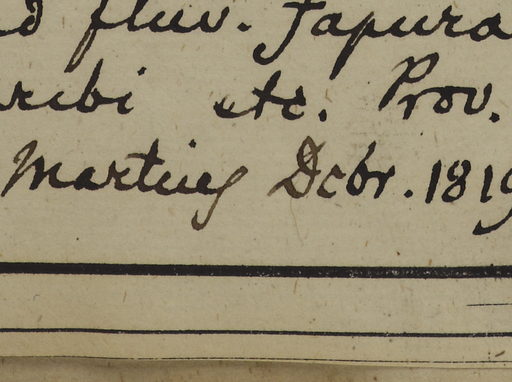 d fluv. Japura
aribi etc. Prov.
Martius Dcbr. 1819